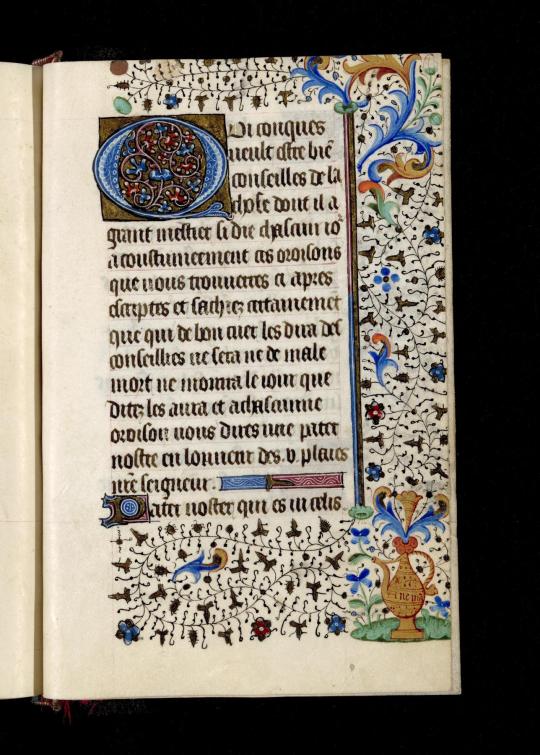 Qui conques
ueult estre biē
conseilles de la
chose dont il a
grant mestier si die chascun io
acoustumeement ces oroisons
que uous trouueres ci apres
escriptes et sachiez certainemēt
que qui de bon cuer les dira des
conseillies ne sera ne de male
mort ne morra le iour que
dites les aura et a chascune
oroison uous dires une pater
nostre en lonneur des .v. plaies
nr̄e seigneur.
Pater noster qui es in celis